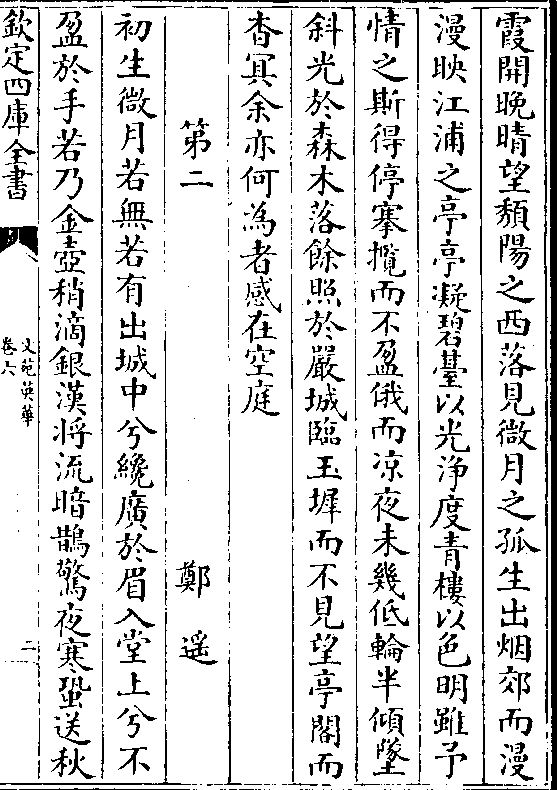 霞開晚晴望頽陽之西落見微月之孤生出烟郊而漫
漫映江浦之亭亭凝碧臺以光浄度青樓以色明雖予
情之斯得停搴攬而不盈俄而凉夜未幾低輪半傾墜
斜光於森木落餘照於嚴城臨玉墀而不見望亭閣而
杳冥余亦何為者感在空庭
第二 鄭遥
初生微月若無若有出城中兮纔廣於眉入堂上兮不
盈於手若乃金壺稍滴銀漢将流暗鵲驚夜寒蛩送秋
欽定四庫全書
文苑英華
卷六
二